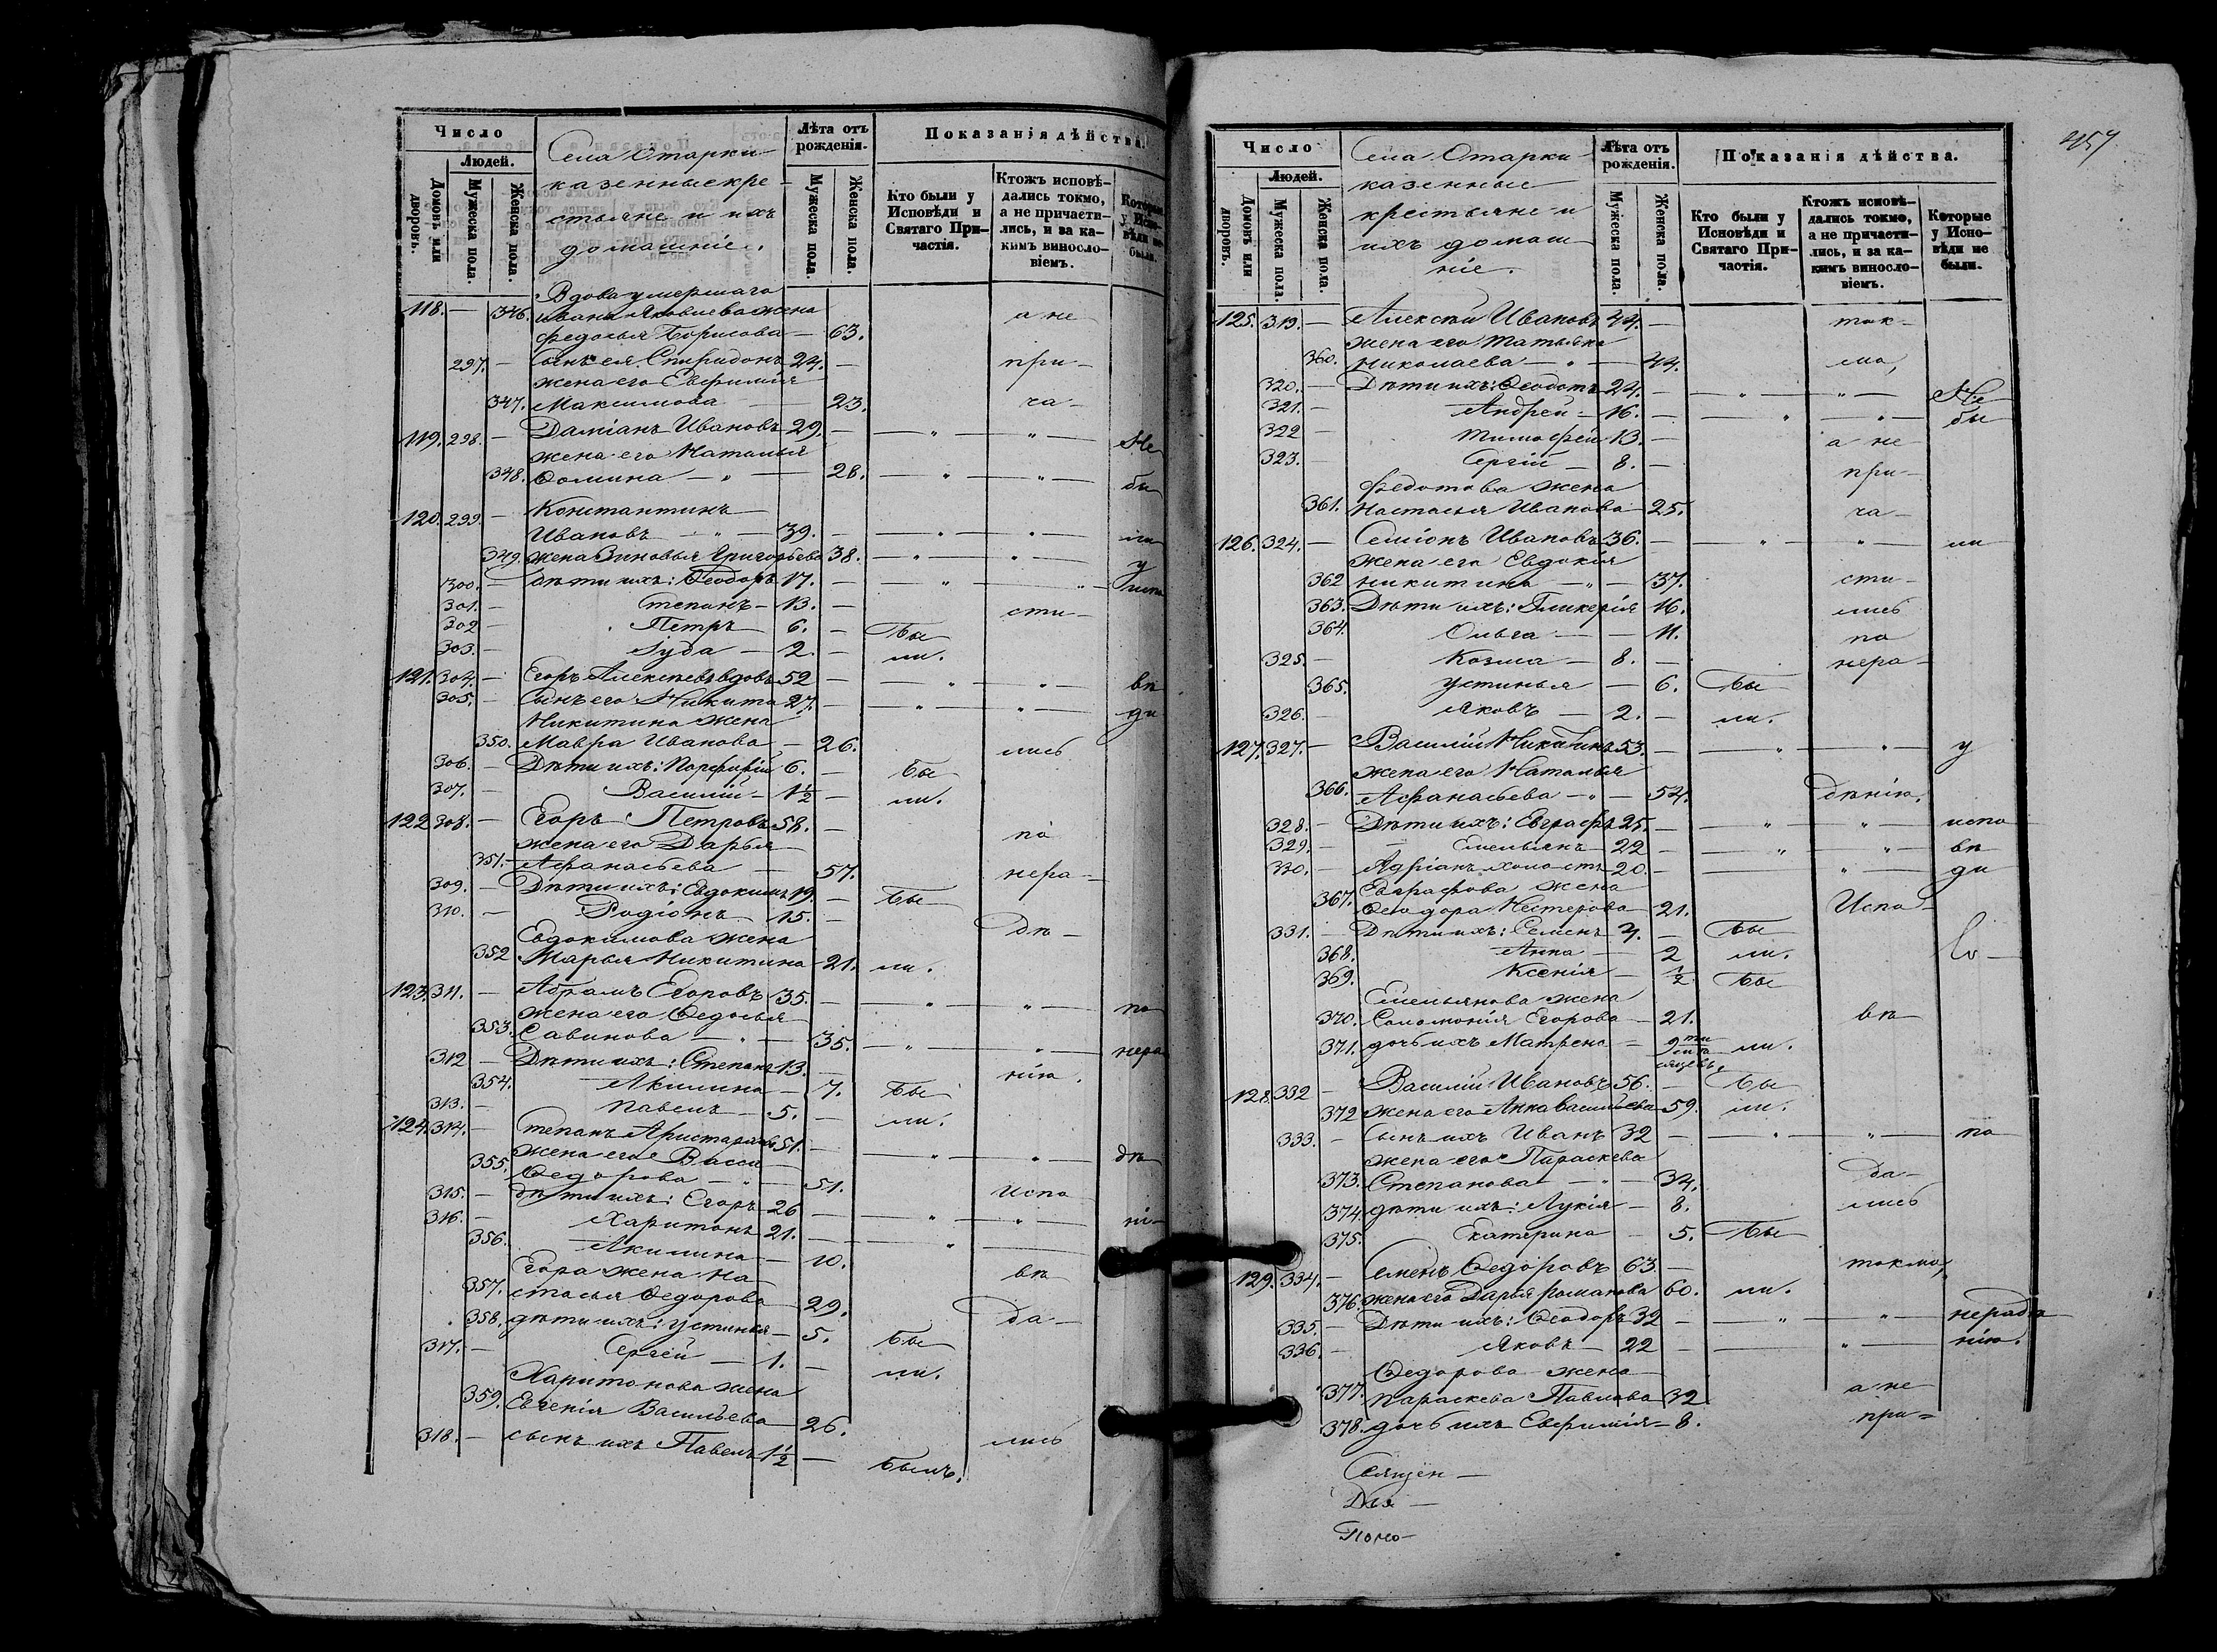 Число
Людей.
Домовъ или дворовъ.
Мужеска пола.
Женска пола.
Села Отарки
казенные кре-
стьяне и ихъ
домашніе.
Лѣта отъ рожденія.
Мужеска пола.
Женска пола.
Показанія дѣйства.
Кто были у Исповѣди и Святаго Причастія.
Ктожъ исповѣдались токмо, а не причастились, и за какимъ винословіемъ.
Которые у Исповѣди не были.
Вдова умершаго
118. — 346. Ивана Яковлева жена а не
Федосья Борисова — 63.
297. — Сынъ ея Спиридонъ 24. — при-
жена его Евфимія
347. Максимова — 23. ча-
119. 298. — Даміанъ Ивановъ 29. — — „ — „ — Не
жена его Наталья
348. Ѳомина — „ — 28. — „ — „ — бы
120. 299. — Константинъ
Ивановъ — „ — 39. — — „ — „ — ли
349. жена Зиновья Григорьева 38. — „ — „ — у
300. — дѣти ихъ: Ѳеодоръ 17. — — „ — „ — Испо
301. — Степанъ — 13. — сти-
302 — Петръ 6. — Бы
303. — Іуда — 2. — ли.
121. 304. — Егоръ Алексѣевъ вдовъ 52 — — „ — „ — вѣ
305. — Сынъ его Никита 27. — — „ — „ — ди
Никитина жена
350. Мавра Иванова — 26. лись
306. — Дѣти ихъ: Порфирій 6. — Бы
307. — Василій — 1½ — ли.
122 308. — Егоръ Петровъ 58. — по
жена его Дарья
351. — Афанасьева — 57. нера-
309. — Дѣти ихъ: Евдокимъ 19. — Бы
310. — Родіонъ 15. — дѣ-
Евдокимова жена
352 Марья Никитина — 21. ли.
123. 311. — Абрамъ Егоровъ 35. — — „ — „ — по
жена его Ѳедосья
353. Савинова — „ — 35. — „ — „ — нера
312 — Дѣти ихъ: Степанъ 13. — нію.
354. Акилина — 7. Бы
313. — Павелъ — 5. — ли.
124. 314. — Степанъ Аристарховъ 51. — — „ — „ — дѣ
жена его Васса
355. Ѳедорова — „ — 51. Испо
315. — дѣти ихъ: Егоръ 26 — — „ — „ — ні-
316. — Харитонъ 21. — — „ —
356. Акилина — 10. вѣ
Егора жена На-
357. стасья Ѳедорова 29. да-
358. дѣти ихъ: Устинья — 5. Бы
317. — Сергей — 1. — ли.
Харитонова жена
359. Евгенія Васильева — 26. лись
318. — сынъ ихъ Павелъ 1½ — Былъ.
457
Число
Людей.
Домовъ или дворовъ.
Мужеска пола.
Женска пола.
Села Отарки
казенные
крестьяне и
ихъ домаш-
ніе.
Лѣта отъ рожденія.
Мужеска пола.
Женска пола.
Показанія дѣйства.
Кто были у Исповѣди и Святаго Причастія.
Ктожъ исповѣдались токмо, а не причастились, и за какимъ винословіемъ.
Которые у Исповѣди не были.
125. 319. — Алексѣй Ивановъ 44. — ток-
жена его Татьяна
360. Николаева — „ — 44. мо,
320. — Дѣти ихъ: Ѳеодотъ 24. — — „ — „ — Не
321. — Андрей — 16. — „ „ — бы
322 — Тимофей 13. — а не
323. — Сергій — 8. — при-
Федотова жена
361. Настасья Иванова — 25. ча-
126. 324. — Семіонъ Ивановъ 36. — — „ — „ — ли
жена его Евдокія
362 Никитина — „ — 37. сти-
363. Дѣти ихъ: Гликерія 16. лись
364. Ольга — — 11. по
325. — Козма — 8. — нера-
365. Устинья — 6. Бы
326. — Яковъ — 2. — ли.
127. 327. — Василій Никитинъ 53. — — „ — „ — у
жена его Наталья
366. Афанасьева — „ — 54. дѣнію.
328. — Дѣти ихъ: Евграфъ 25. — — „ — „ — испо
329. — Емельянъ 22 — — „ — „ — вѣ
330. — Адріанъ холостъ 20. — — „ — ди
Евграфова жена
367. Ѳеодора Нестерова 21. Испо-
331. — Дѣти ихъ: Семенъ 7. — Бы
368. Анна — 2 ли.
369. Ксенія — ½ Бы
Емельянова жена
370. Соломонія Егорова — 21. вѣ
371. дочь ихъ Матрена — 9ти мѣсяцевъ, ли.
128. 332 — Василій Ивановъ 56. — Бы
372 жена его Анна Васильева 59. ли.
333. — Сынъ ихъ Иванъ 32 — — „ — „ — по
жена его Параскева
373. Степанова — „ — 34. да-
374. дѣти ихъ: Лукія — 8. лись
375. Екатерина — 5. Бы
129. 334. — Семенъ Ѳедоровъ 63. — токмо,
376. жена его Дарья Романова 60. ли.
335. — Дѣти ихъ: Ѳеодоръ 32 — — „ — „ — нерадѣ
336. — Яковъ — 22 — — „ — нію.
Ѳедорова жена
377. Параскева Павлова 32 а не
378. дочь ихъ Евфимія — 8. при-
Священ —
Дья —
Поно —